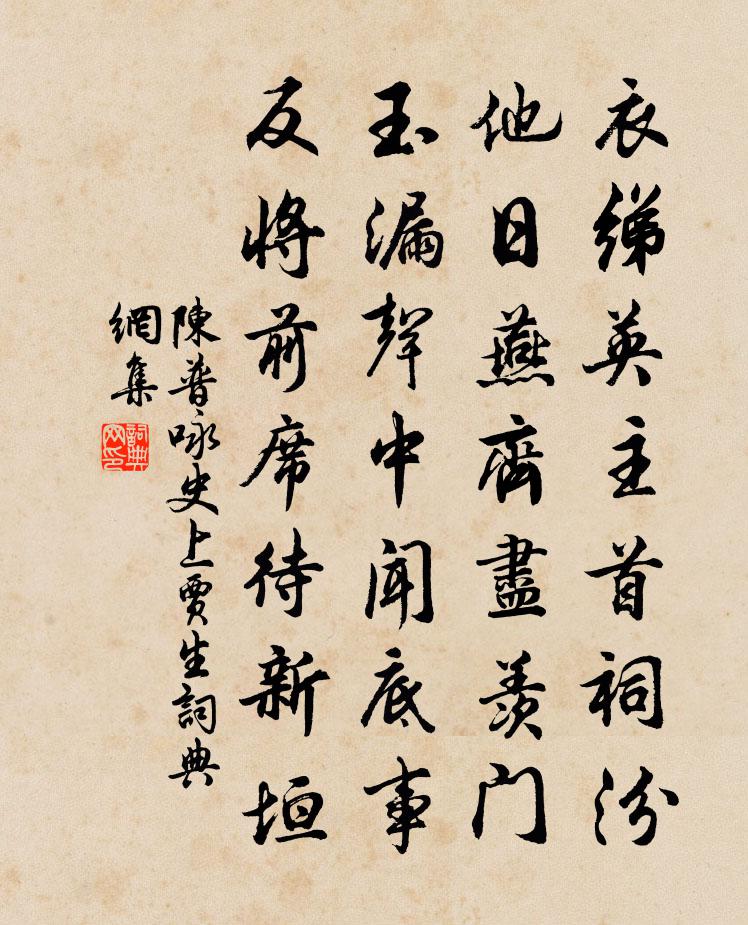 衣綈英主首祠汾
他日燕齊盡羨門
玉漏聲中聞底事
反將前席待新垣
陳普咏史上賈生詞典
網集
詞典網印